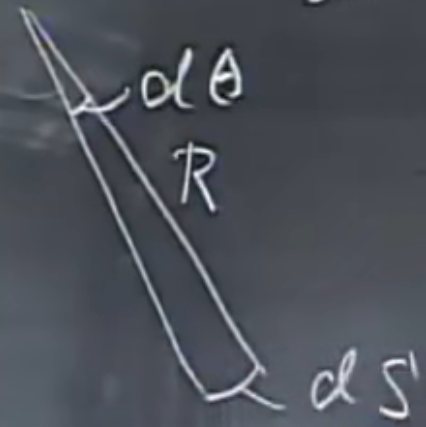 dθ
R
dS